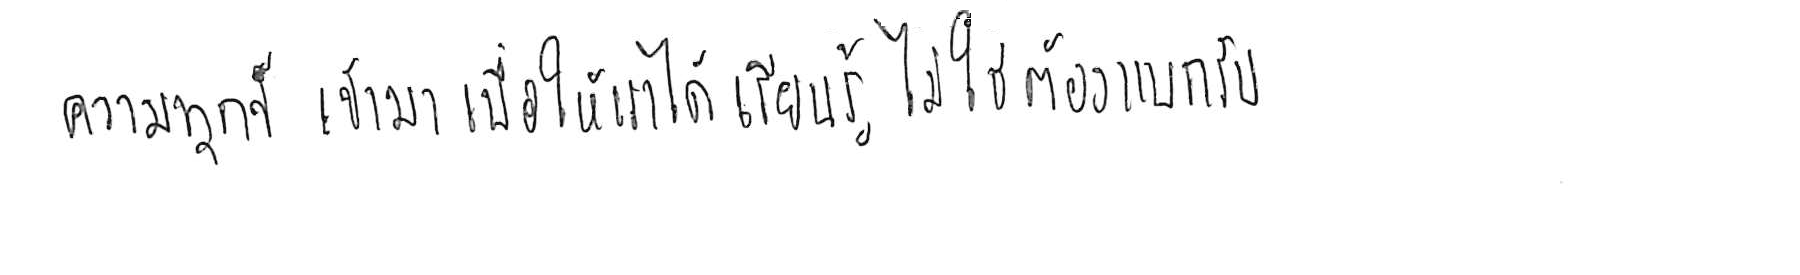 ความทุกข์ เข้ามา เพื่อให้เราได้ เรียนรู้ ไม่ใช่ ต้องแบกรับ